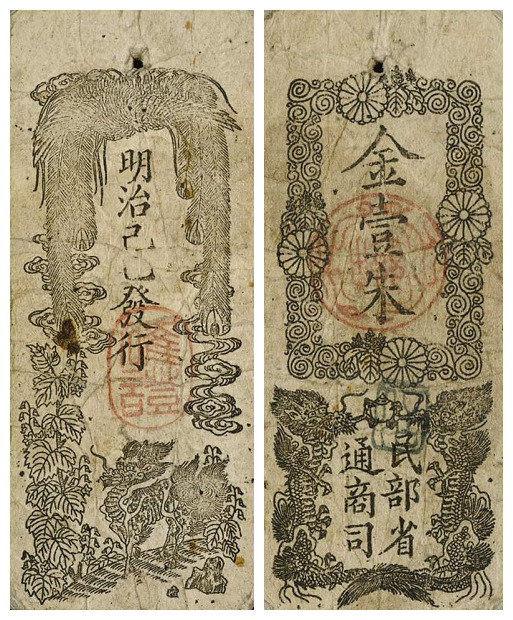 明治己巳發行
金壹朱
民部省
通商司